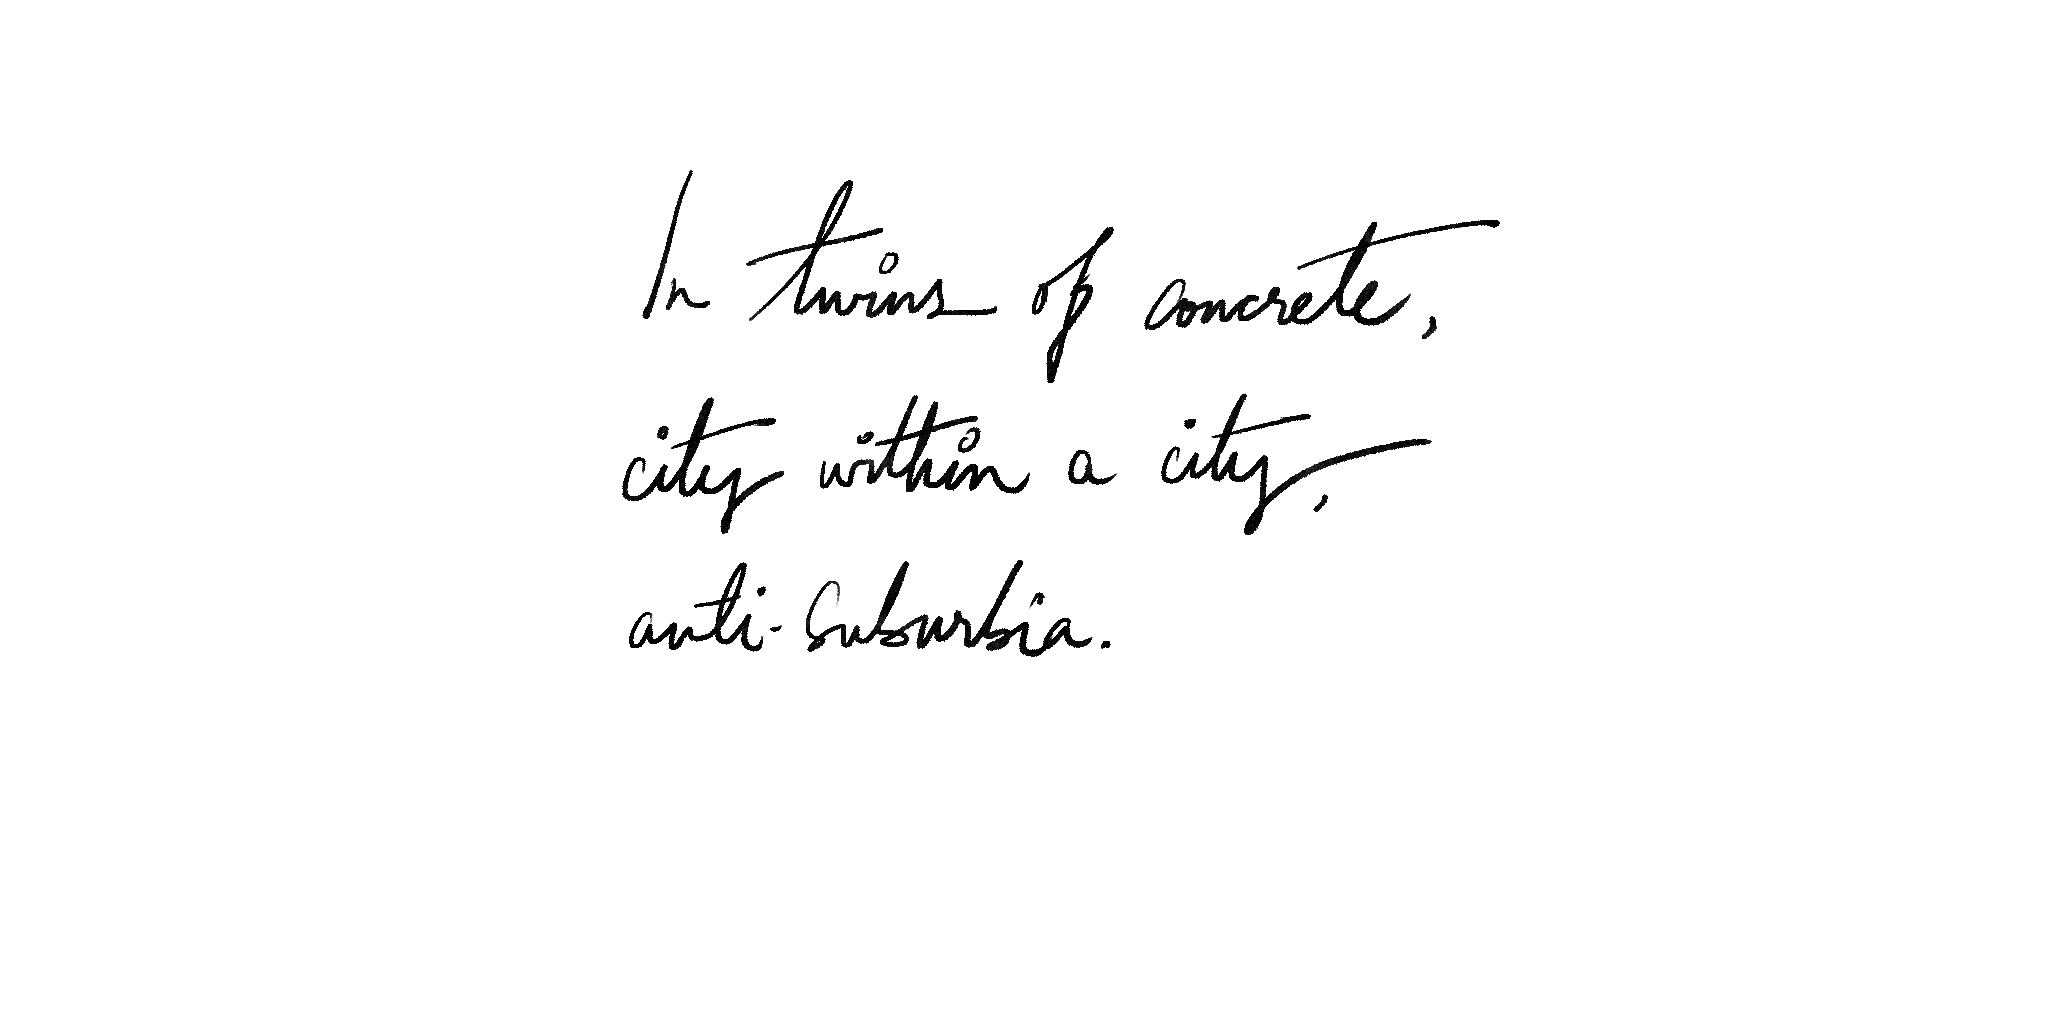 In twins of concrete,
city within a city,
anti-suburbia.